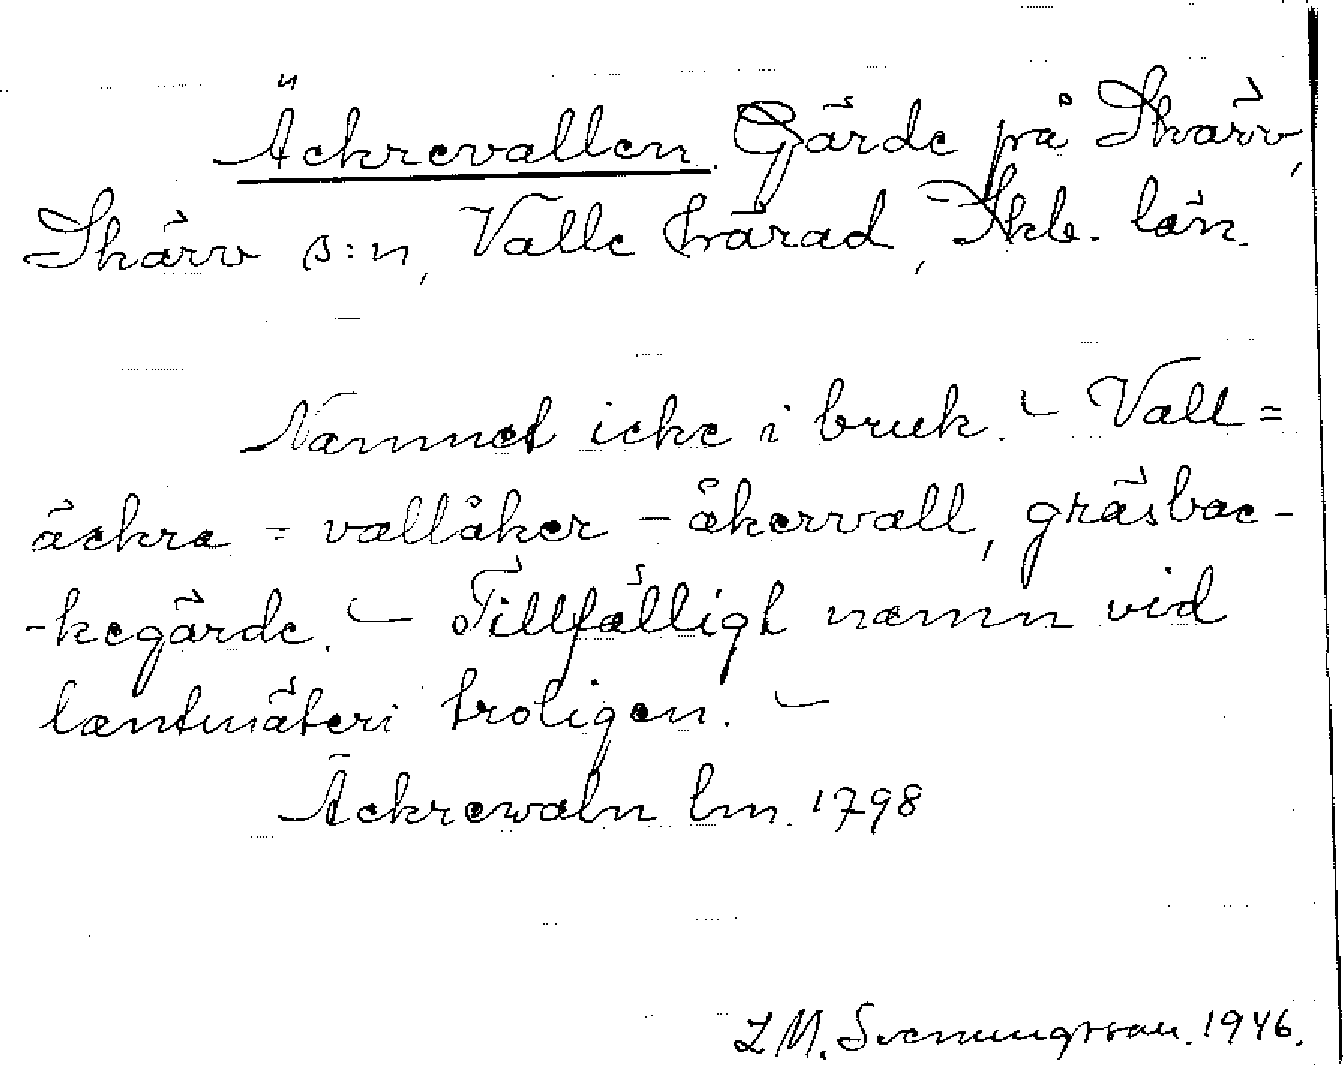 Äckrevallen. Gärde på Skärv,
Skärv s:n, Valle härad, Skb. län.
Namnet icke i bruk. – Vall=
äckra = vallåker – åkervall, gräsbac-
-kegärde. – Tillfälligt namn vid
lantmäteri troligen. –
Äckrewaln lm. 1798
L M. Svenungsson. 1946.